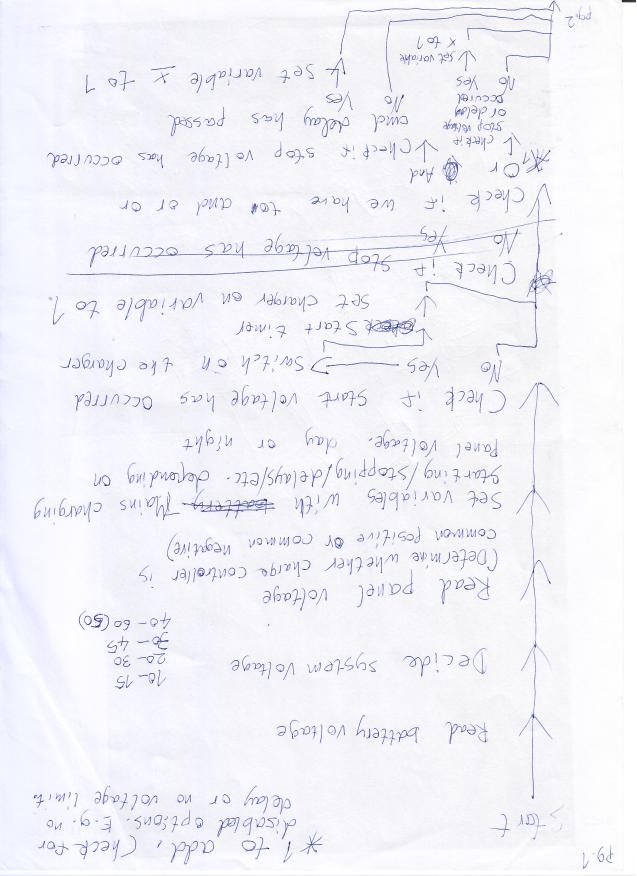 pg.1
Start
*1 to add, check for
disabled options. E.g. no
delay or no voltage limit.
Read battery voltage
Decide system voltage
10-15
20-30
30-45
40-60 (50)
Read panel voltage
(Determine whether charge controller is
common positive or common negative)
Set variables with battery Mains charging
starting/stopping/delays/etc. depending on
panel voltage. day or night
Check if start voltage has occurred
No Yes Switch on the charger
Start timer
Set charger on variable to 1.
Check if stop voltage has occurred
No Yes
Check if we have to and or or
*1 Or And
check if
stop voltage
or delay
occurred
No Yes
set variable
x to 1
Check if stop voltage has occurred
and delay has passed
No Yes
Set variable x to 1
pg.2